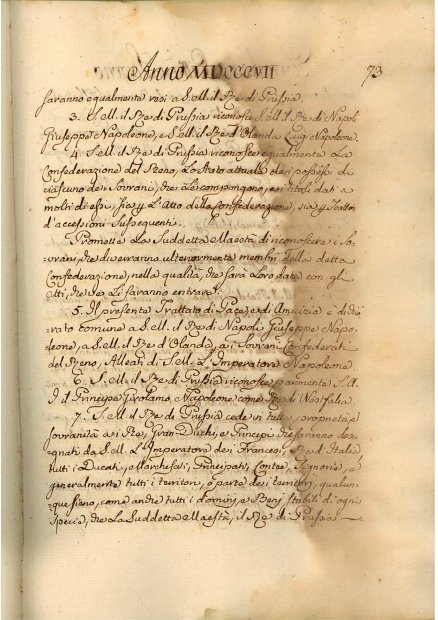 Anno MDCCCVII 73
saranno egualmente resi a S. M. il Re di Prussia.
3. S. M. il Re di Prussia riconosce S. M. il Re di Napoli
Giuseppe Napoleone, e S. M. il Re d'Olanda Luigi Napoleone.
4. S. M. il Re di Prussia riconosce egualmente La
Confederazione del Reno, Lo stato attuale dei possessi di
ciascuno dei Sovrani, che La compongono, e i titoli dati a
molti di essi, sia p L'Atto della Confederazione, sia p Trattati
d'accessioni Susseguenti.
Promette La Suddetta Maestà di riconoscere i So-
vrani, che diverranno ulteriormente membri della detta
Confederazione, nella qualità, che sarà Loro data con gli
atti, che ve Li faranno entrare.
5. Il presente Trattato di Pace, e di Amicizia è dichia-
rato comune a S. M. il Re di Napoli Giuseppe Napo-
leone, a S. M. il Re d'Olanda, a i Sovrani Confederati
del Reno, Alleati di S. M. L'Imperatore Napoleone
6. S. M. il Re di Prussia riconosce parimente S. A.
I. il Principe Girolamo Napoleone come Re di Westfalia.
7. S. M. il Re di Prussia cede in tutta proprietà, e
sovranità a i Re, Gran-Duchi, e Principi che saranno deg-
ignati da S. M. L'Imperatore dei Francesi, Re d'Italia
tutti i Ducati, Marchesati, Principati, Contee, Signorie, e
generalmente tutti i territori, o parte dei territori, qualun-
que siano, come anche tutti i dominj, e Benj stabili di ogni
specie, che La Suddetta Maestà, il Re di Prussia